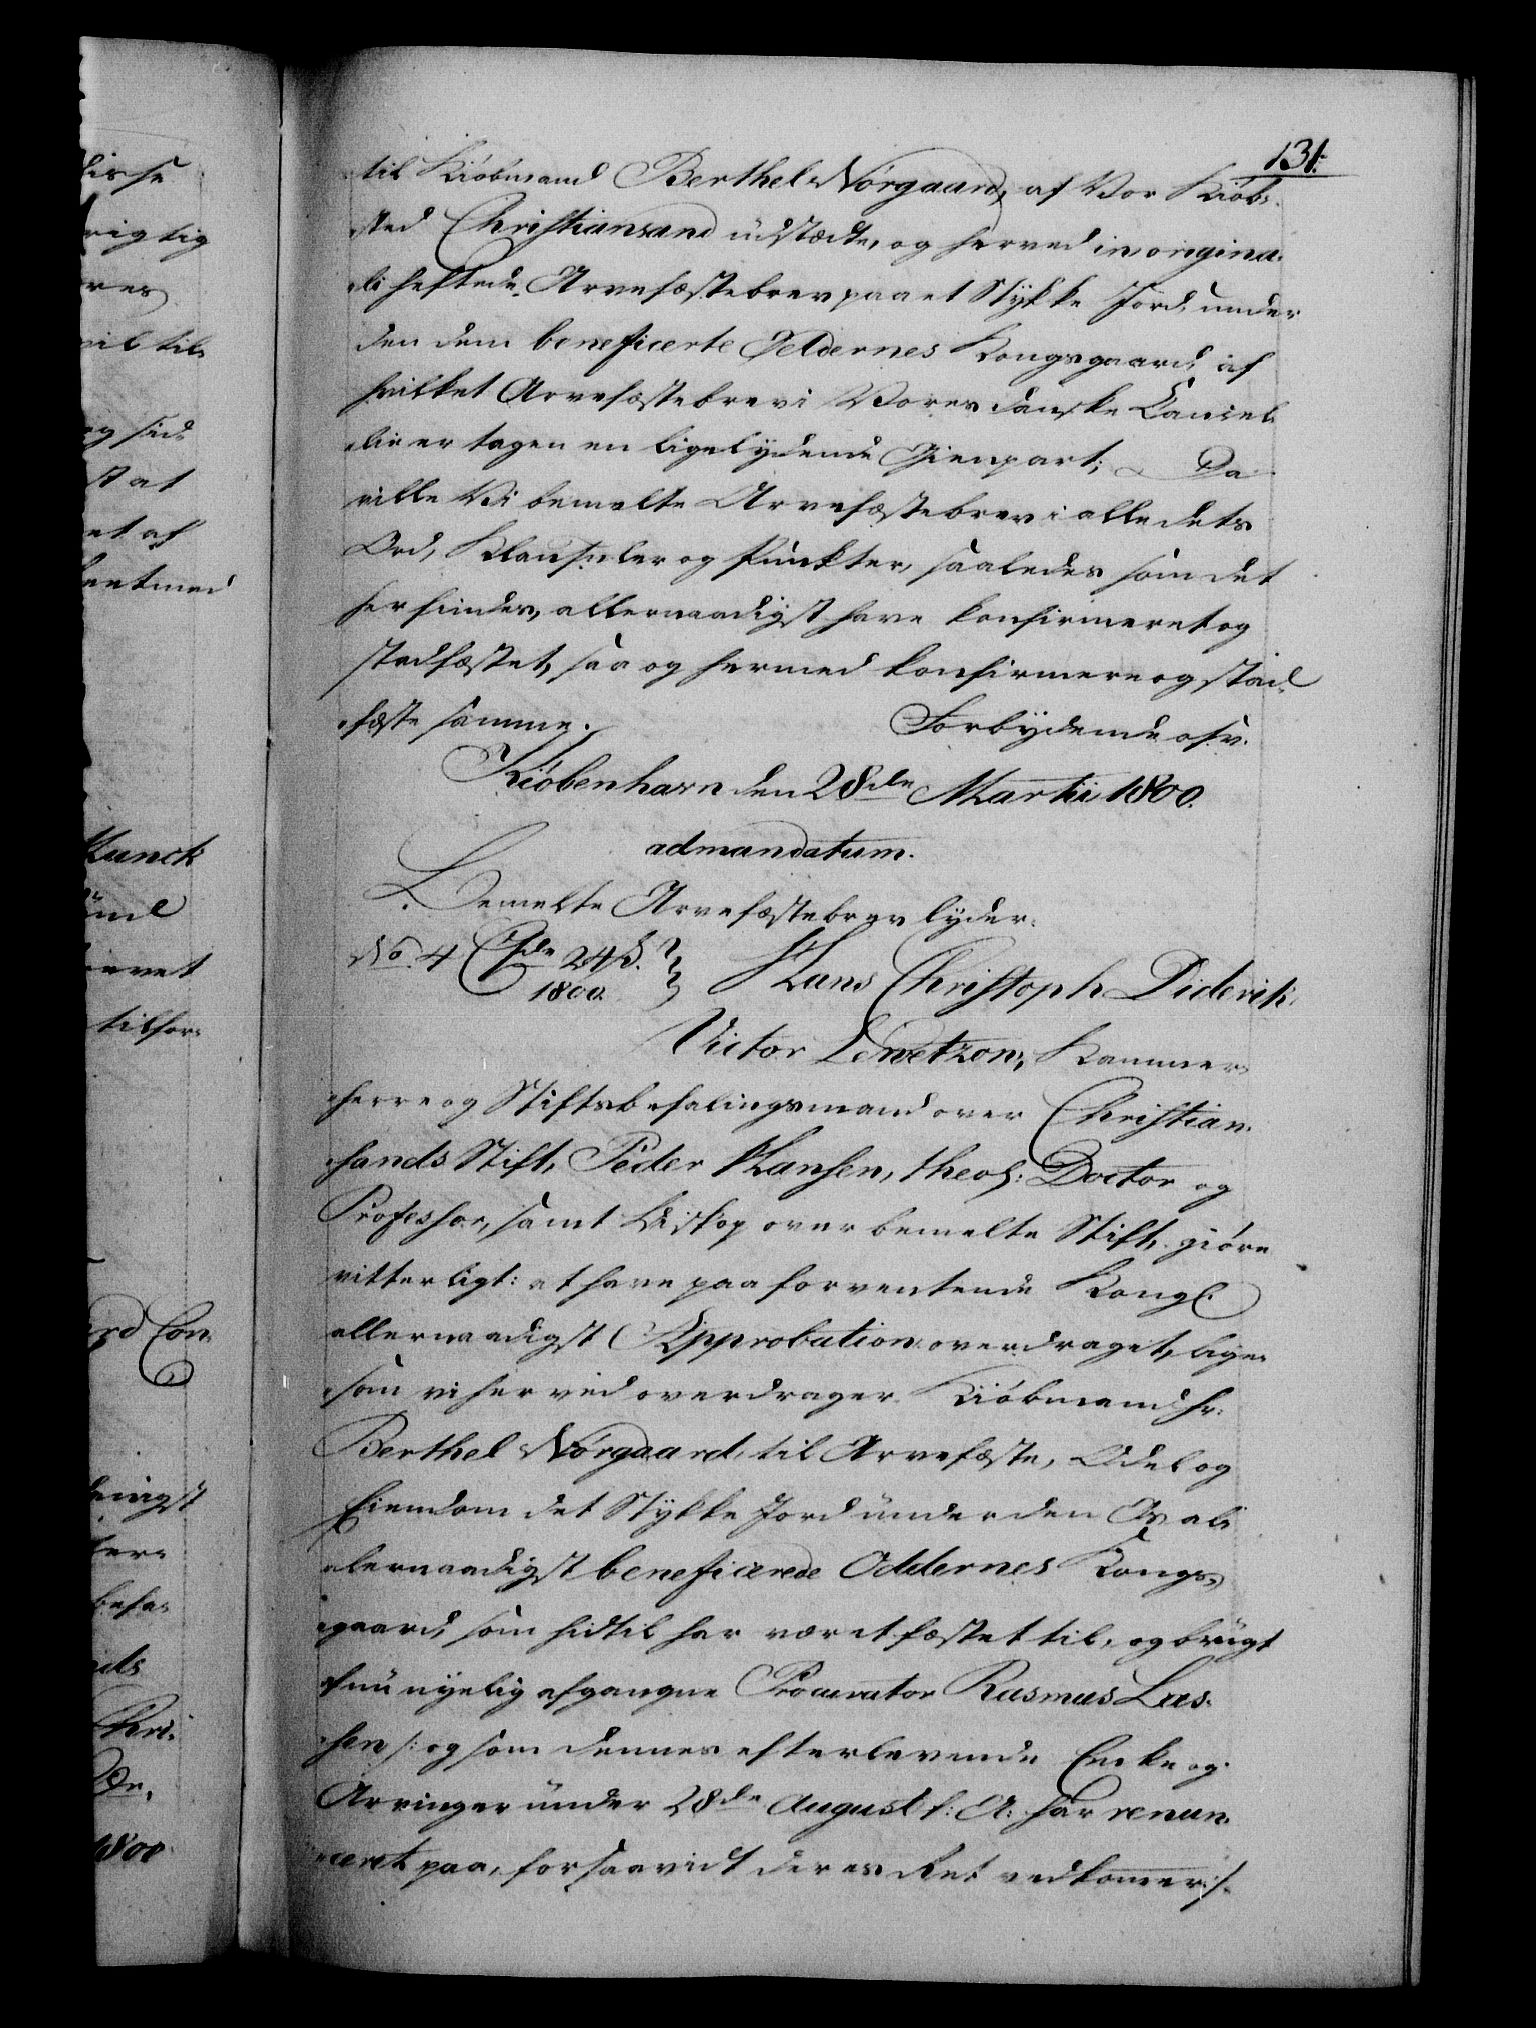 131.
til Kiöbmand Berthel Nörgaard, af Vor Kiöb-
sted Christiansand udstædte, og herved in origina-
li heftede Arvefæstebrev paa et Stykke Jord, under
den dem beneficerte Oddernes Kongsgaard, af
hvilket Arvefæstebrev i Vores danske Cancel-
lie er tagen en ligelydende Gienpart; Da
ville Vi bemelte Arvefæstebrev i alle dets
Ord, Klausuler og Punkter, saaledes som det
her findes, allernaadigst have konfirmeret og
stadfæstet, saa og hermed konfirmere og stad-
fæste samme. Forbydende osv.
Kiöbenhavn den 28de Martii 1800.
ad mandatum.
Bemelte Arvefæstebrev lyder.
No. 4 24 s. 1800. } Hans Christoph Diderik
Victor Levetzon, Kammer-
herre og Stiftsbefalingsmand over Christian-
sands Stift, Peder Hansen, theol: Doctor og
Professor, samt Biskop over bemelte Stift, giöre
vitterligt: at have paa forventende Kongl.
allernaadigst Approbation overdraget, lige-
som vi herved overdrager Kiöbmand Hr.
Berthel Nörgaard, til Arvefæste, Odel og
Eiendom det Stykke Jord under den Os al-
lernaadigst beneficerede Oddernes Kongs-
gaard, som hidtil har været fæstet til, og brugt
af nu nyelig afgangne Procurator Rasmus Las-
sen /: og som dennes efterlevende Enke og
Arvinger under 28de August f: A: har renun-
ceret paa, forsaavidt deres Ret vedkommer :/